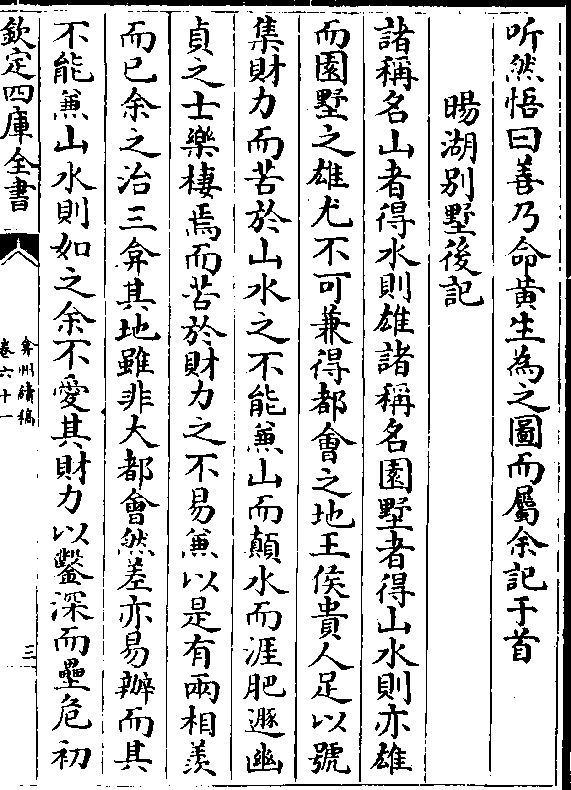 听然悟曰善乃命黄生為之圖而屬余記于首
暘湖别墅後記
諸稱名山者得水則雄諸稱名園墅者得山水則亦雄
而園墅之雄尤不可兼得都會之地王侯貴人足以號
集財力而苦於山水之不能兼山而顛水而涯肥遯幽
貞之士樂棲焉而苦於財力之不易兼以是有兩相羡
而已余之治三弇其地雖非大都會然差亦易辦而其
不能兼山水則如之余不愛其財力以鑿深而壘危初
欽定四庫全書
弇州續稿
卷六十一
三